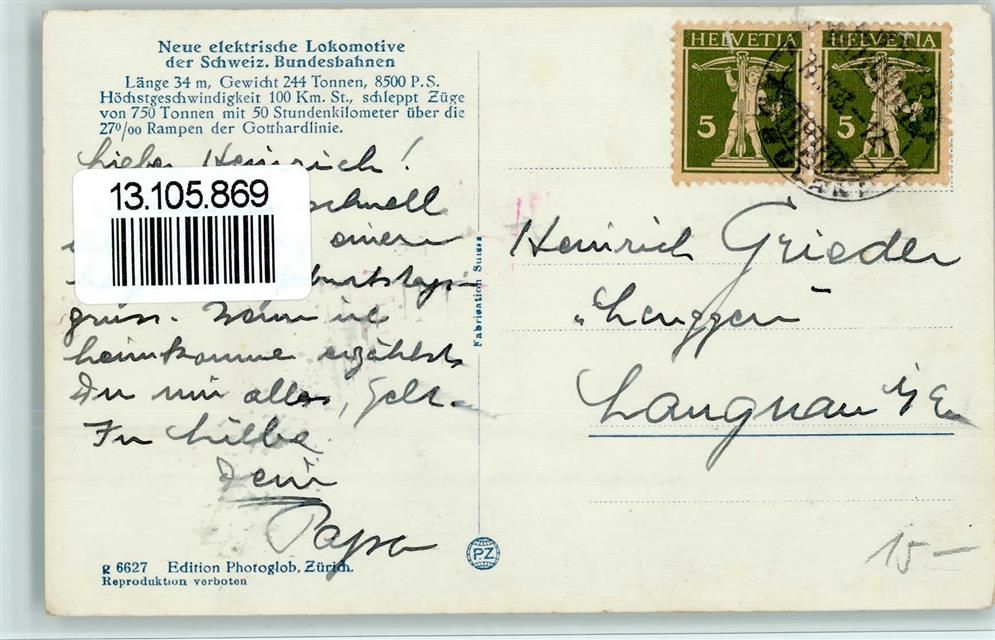 Neue elektrische Lokomotive
der Schweiz. Bundesbahnen
Länge 34 m, Gewicht 244 Tonnen, 8500 P.S.
Höchstgeschwindigkeit 100 Km. St., schleppt Züge
von 750 Tonnen mit 50 Stundenkilometer über die
27⁰/₀₀ Rampen der Gotthardlinie.
Lieber Heinrich!
13.105.869
schnell
einen
burtstags-
gruss. Wenn ich
heimkomme erzählst
Du mir alles, Gelt -
In Liebe
Dein
Papa
g 6627 Edition Photoglob, Zürich.
Reproduktion verboten
Fabrication Suisse
PZ
HELVETIA HELVETIA
5 5
Heinrich Grieder
Langnau i/E
15-